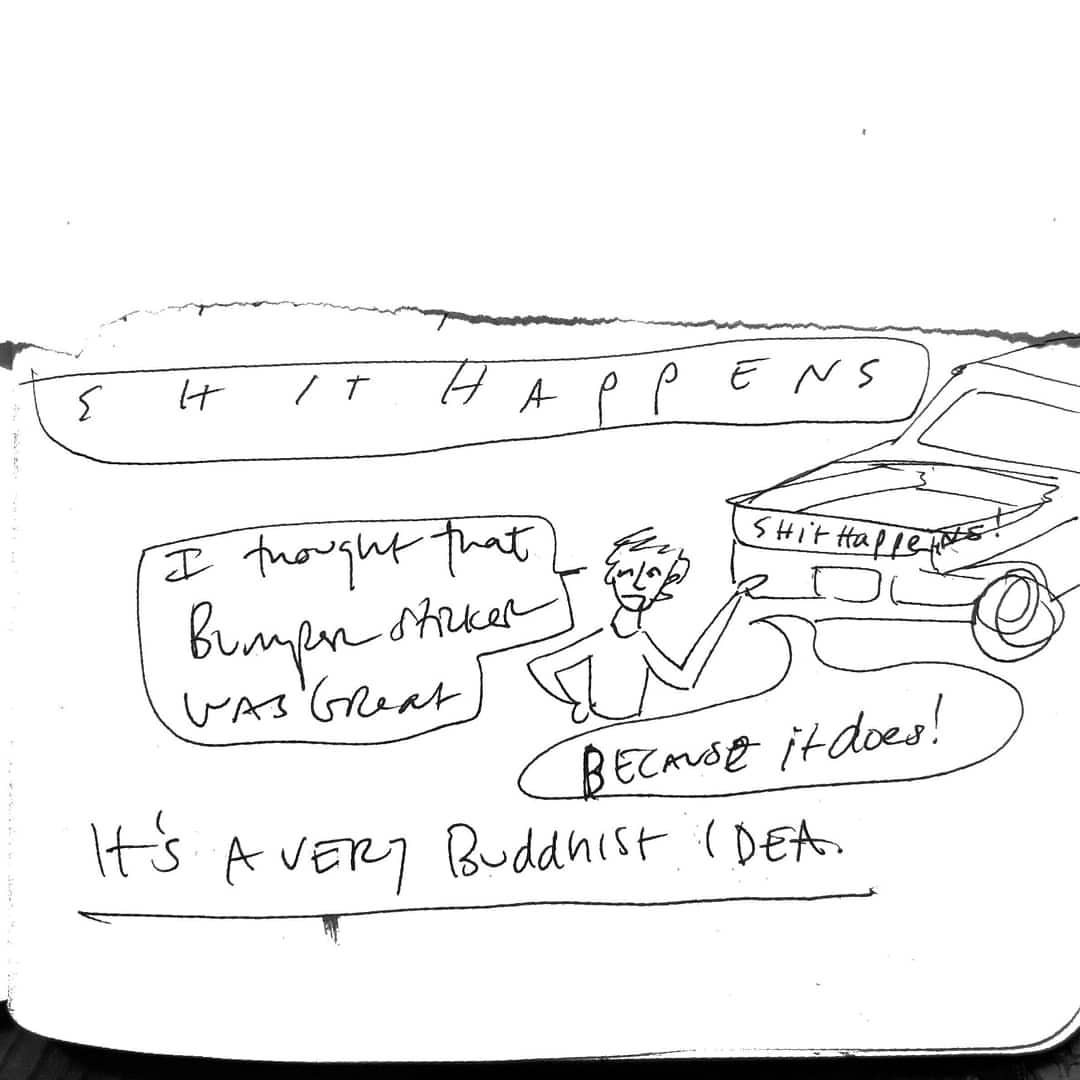 SHIT HAPPENS
SHit Happens!
I thought that
Bumper sticker
WAS GReat
BECAUSE it does!
It's A VERY Buddhist IDEA.